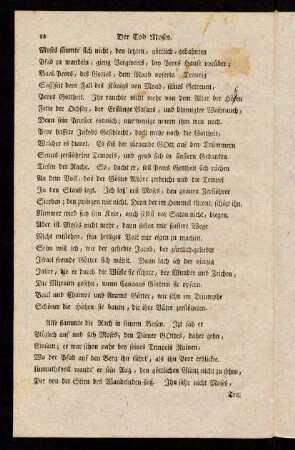 12 Der Tod Moses.
Moses säumte sich nicht, den letzten, göttlich-gebahnten
Pfad zu wandeln; gieng Bergpeors, des Peors Hause vorüber;
Baal-Peors, des Gottes, dem Moab opferte. Traurig
Saß ist dem Fall des Königs von Moab, seines Getreuen,
Peors Gottheit. Ihr rauchte nicht mehr von dem Altar der Höhen
Fette der Ochsen, der Erstlinge und blumigter Weihrauch,
Denn sein Priester entrann; nur wenige waren ihm noch.
Peor haßte Jakobs Geschlecht, doch mehr noch die Gottheit,
Welcher es dienet. Es saß der zürnende GOtt auf den Trümmern
Seines zerstöhrten Tempels, und grub sich in finstern Gedanken
Tiefen der Rache. So, dacht er, soll Peors Gottheit sich rächen
An dem Volk, das der Götter Altäre zerbricht und die Tempel
In den Staub legt. Ich laß erst Moses, den grauen Zerstöhrer
Sterben; den zwingen wir nicht. Denn der im Himmel thront, schützt ihn.
Nimmer wird sich sein Knie, auch selbst vor Satan nicht, biegen.
Aber ist Moses nicht mehr, dann sollen mir listiere Wege
Nicht entstehen, sein heiliges Volk mir eigen zu machen.
Sehn will ich, wie der geliebte Jacob, der zärtlich-geliebte
Israel fremde Götter sich wählt. Dann lach ich der vierzig
Jahre, die er durch die Wüste sie führte; der Wunder und Zeichen,
Die Mizraim gesehn, wann Canaans Göttern sie opfern.
Baal und Chamos und Arams Götter, wir sehn im Triumphe
Schöner die Höhen sie bauen, die ihre Väter zerstöhrten.
Also flammte die Rach in seinem Busen. Itzt sah er
Plötzlich auf und sah Moses, den Diener GOttes, daher gehn,
Einsam; er war schon nahe bey seines Tempels Ruinen,
Wo der Pfad auf den Berg ihn führt, als ihn Peor erblickte.
Unmuthsvoll wandt' er sein Aug, den göttlichen Glanz nicht zu sehen,
Der von der Stirn des Wandelnden floß. Ihn sahe nicht Moses,